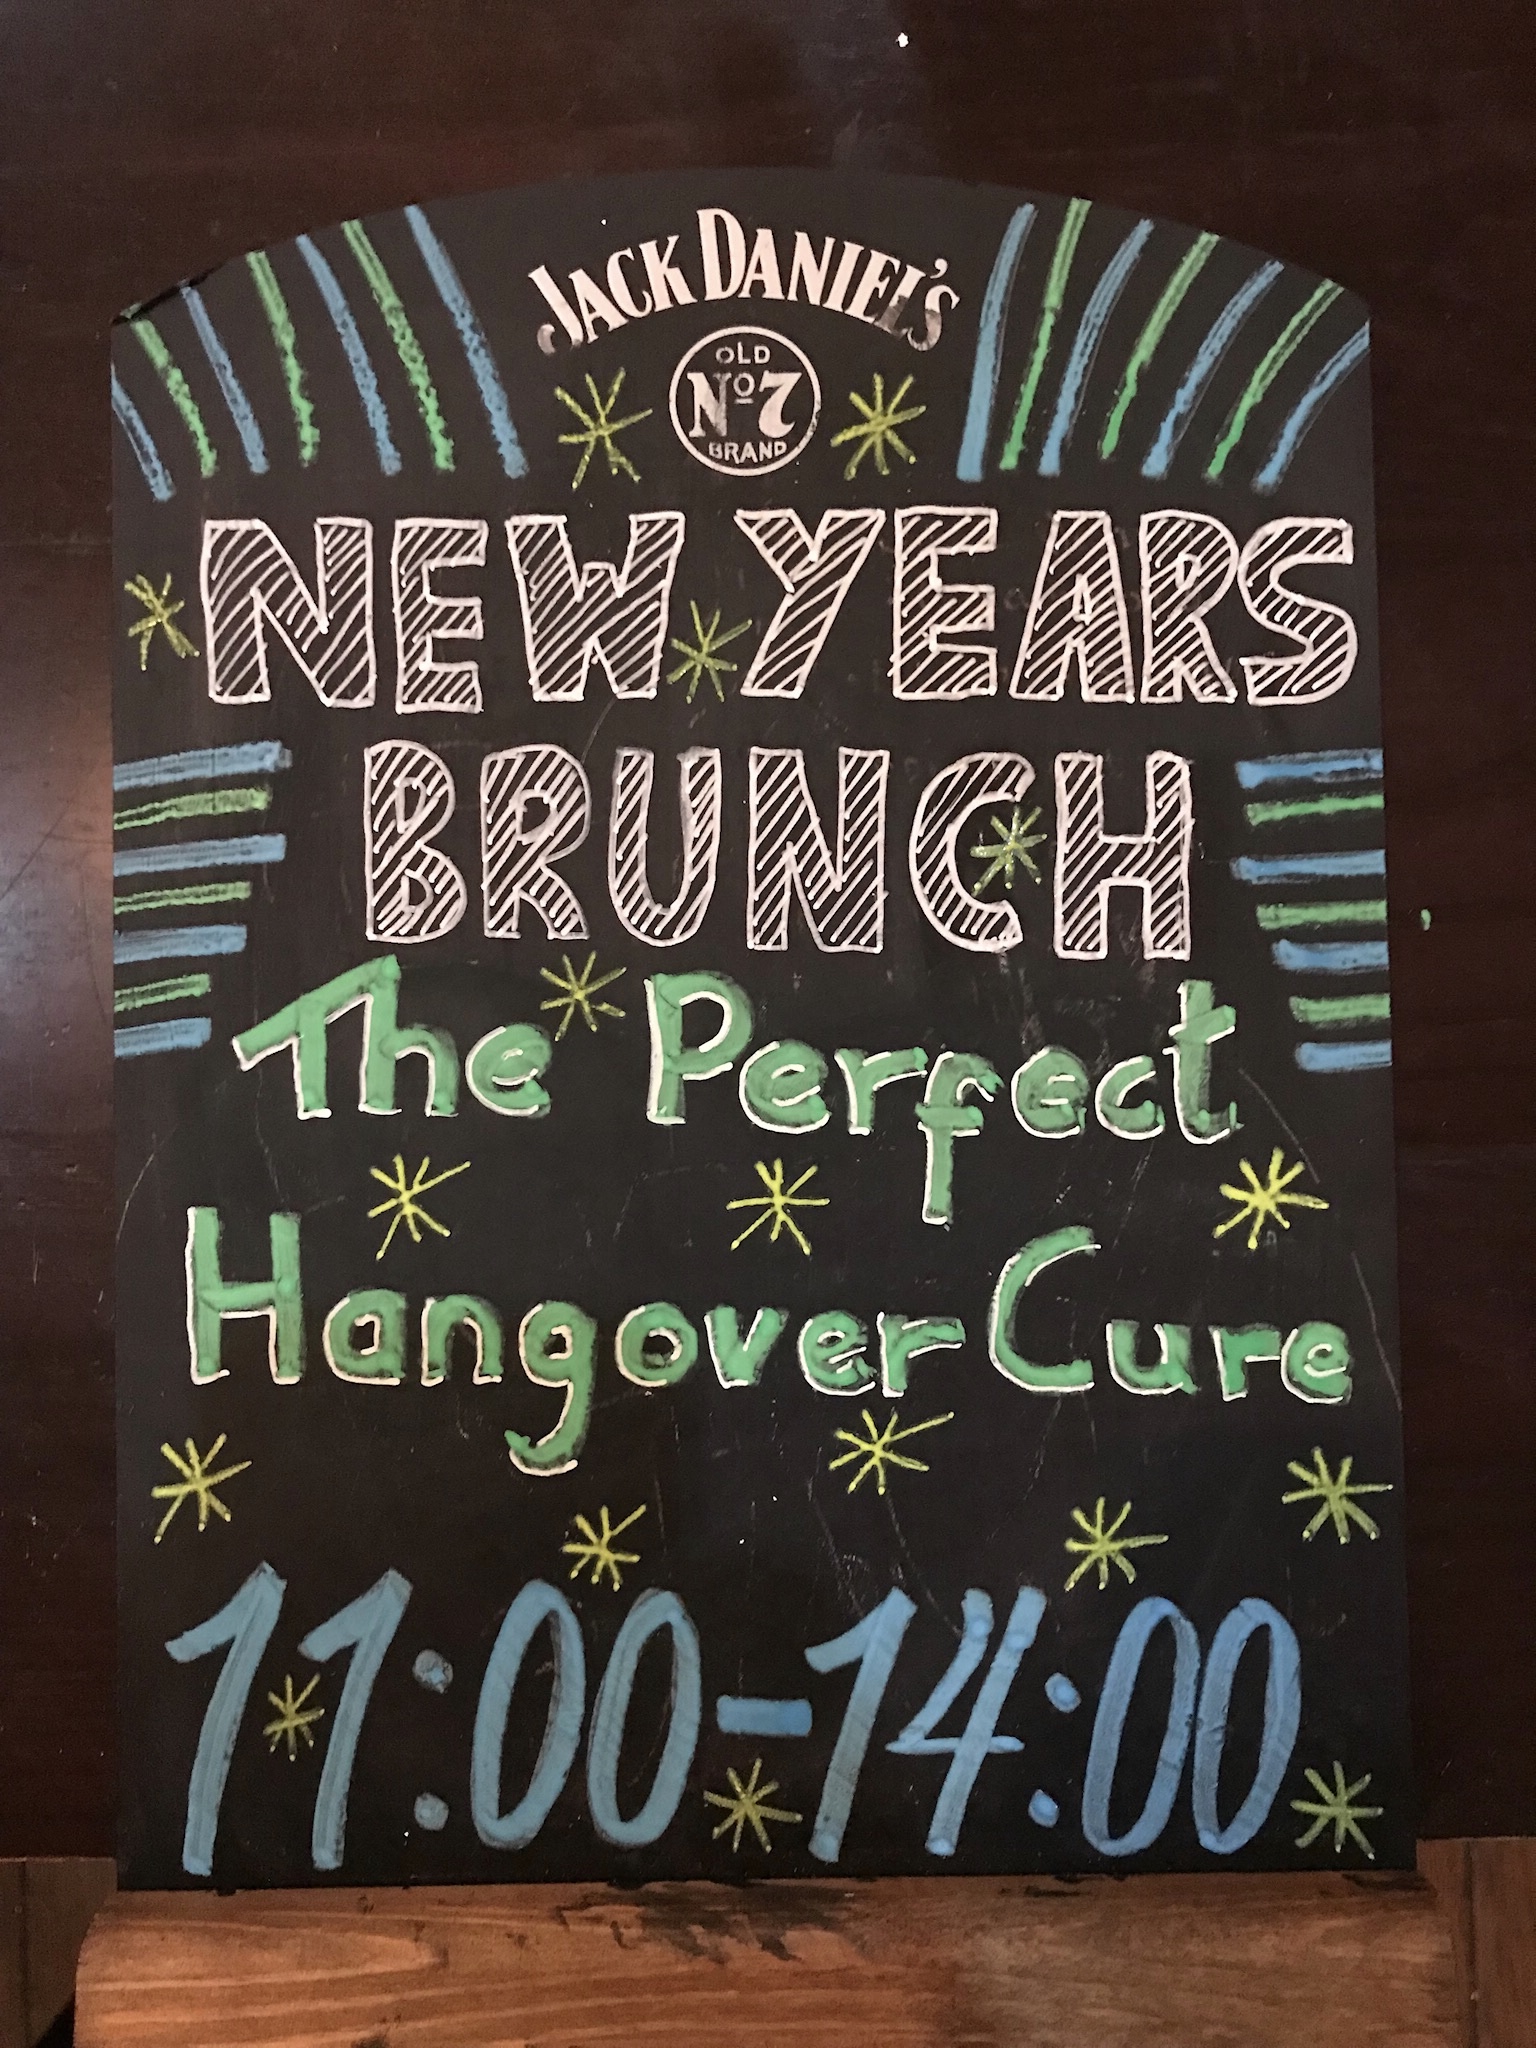 JACK DANIEL'S
OLD
Nº7
BRAND
NEW YEARS
BRUNCH
The Perfect
Hangover Cure
11:00-14:00